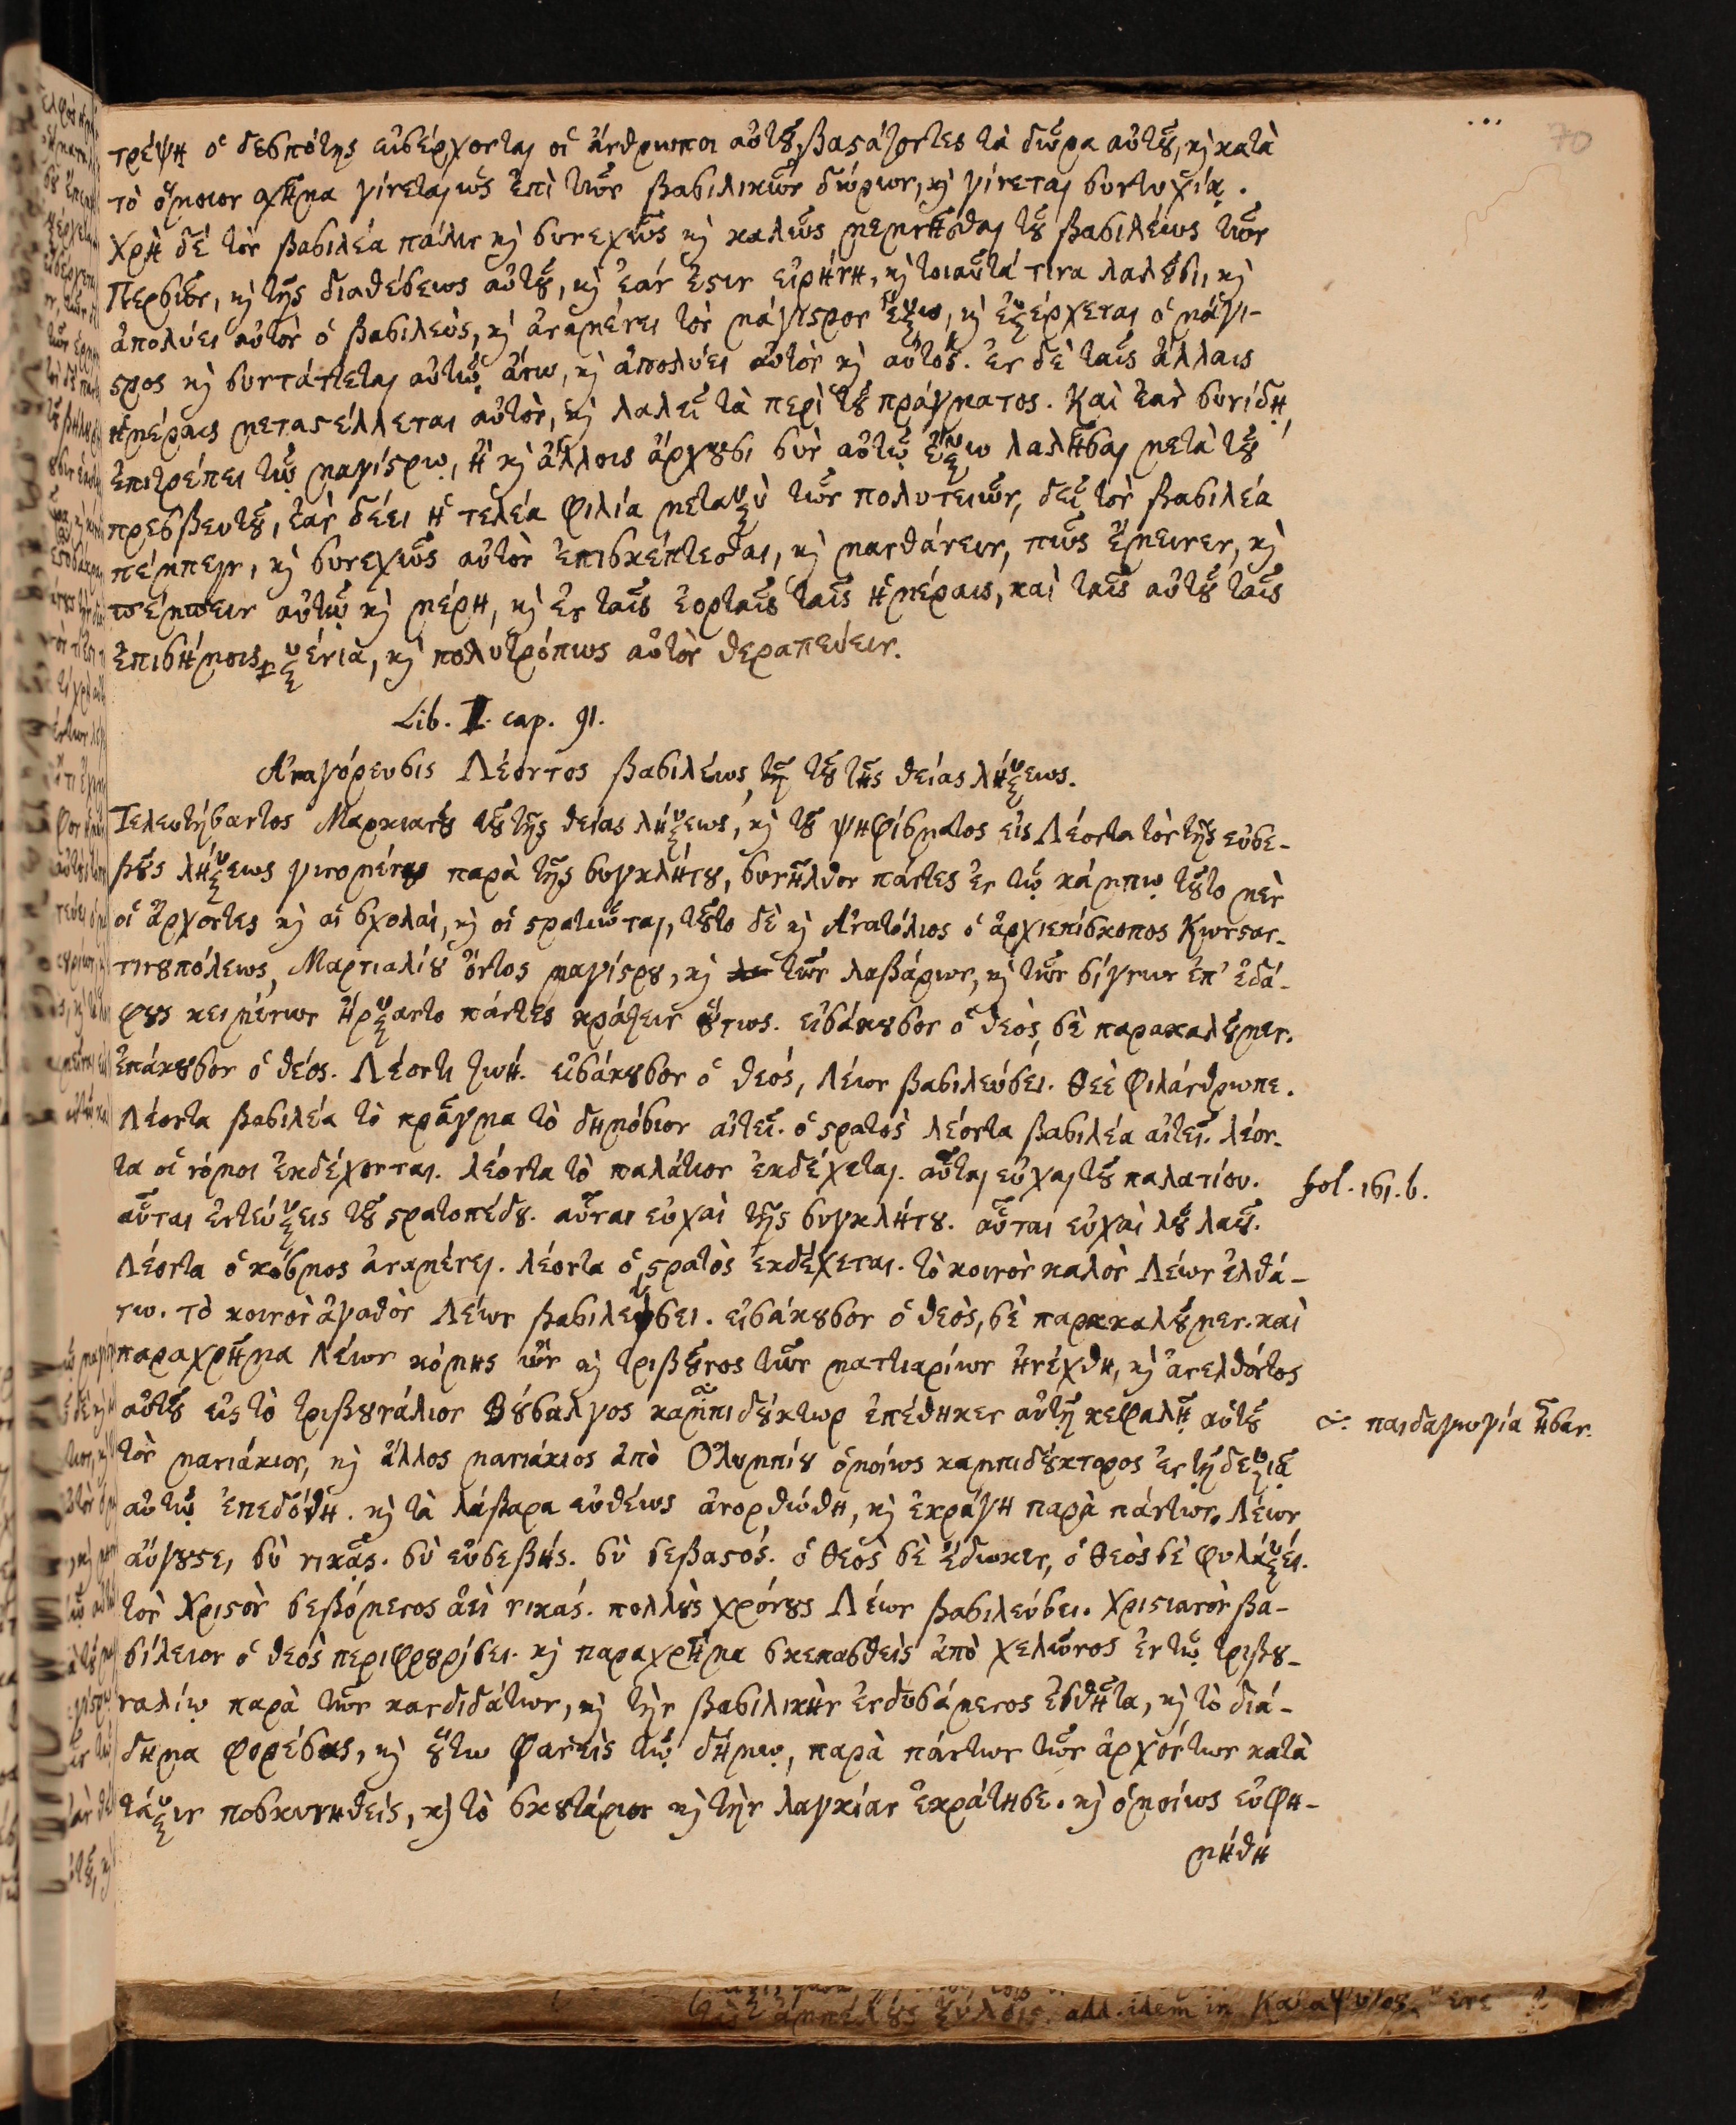 70
τρέψη ὁ δεσπότης εἰσέρχονται οἱ ἄνθρωποι αὐτοῦ, βαστάζοντες τὰ δῶρα αὐτοῦ, καὶ κατὰ
τὸ ὅμοιον σχῆμα γίνεται, ὡς ἐπὶ τῶν βασιλικῶν δώρων, καὶ γίνεται συντυχία.
Χρὴ δὲ τὸν βασιλέα πάλιν καὶ συνεχῶς καὶ καλῶς μεμνῆσθαι τοῦ βασιλέως τῶν
Περσῶν, καὶ τῆς διαθέσεως αὐτοῦ, καὶ ἐάν ἐστιν εἰρήνη, καὶ τοιαῦτά τινα λαλοῦσι, καὶ
ἀπολύει αὐτὸν ὁ βασιλεὺς, καὶ ἀναμένει τὸν μάγιστρον ἔξω, καὶ ἐξέρχεται ὁ μάγι-
στρος καὶ συντάττεται αὐτῷ ἄνω, καὶ ἀπολύει αὐτὸν καὶ αὐτός. ἐν δὲ ταῖς ἄλλαις
ἡμέραις μεταστέλλεται αὐτὸν, καὶ λαλεῖ τὰ περὶ τοῦ πράγματος. Καὶ ἐὰν συνίδῃ,
ἐπιτρέπει τῷ μαγίστρῳ, ἢ καὶ ἄλλοις ἄρχουσι σὺν αὐτῷ ἔξω λαλῆσαι μετὰ τοῦ
πρεσβευτοῦ, ἐὰν δέει ἡ τελέα φιλία μεταξὺ τῶν πολυτειῶν, δεῖ τὸν βασιλέα
πέμπειν, καὶ συνεχῶς αὐτὸν ἐπισκέπτεσθαι, καὶ μανθάνειν, πῶς ἔμεινεν, καὶ
πέμπειν αὐτῷ καὶ μέρη, καὶ ἐν ταῖς ἑορταῖς ταῖς ἡμέραις, καὶ ταῖς αὐτοῦ ταῖς
ἐπισήμοις ξένια, καὶ πολυτρόπως αὐτὸν θεραπεύειν.
Lib. I. cap. 91.
Ἀναγόρευσις Λέοντος βασιλέως, τῇ τοῦ τῆς θείας λήξεως.
Τελευτήσαντος Μαρκιανοῦ τοῦ τῆς θείας λήξεως, καὶ τοῦ ψηφίσματος εἰς Λέοντα τὸν τῆς εὐσε-
βοῦς λήξεως γινομένου παρὰ τῆς συγκλήτου, συνῆλθον πάντες ἐν τῷ κάμπῳ τοῦτο μὲν
οἱ ἄρχοντες καὶ αἱ σχολαὶ, καὶ οἱ στρατιῶται, τοῦτο δὲ καὶ Ἀνατόλιος ὁ ἀρχιεπίσκοπος Κωνσταν-
τινουπόλεως, Μαρτιαλίου ὄντος μαγίστρου, καὶ τῶν λαβάρων, καὶ τῶν σίγνων ἐπ' ἐδά-
φους κειμένων ἤρξαντο πάντες κράζειν οὕτως. εἰσάκουσον ὁ θεὸς, σὲ παρακαλοῦμεν.
ἐπάκουσον ὁ θεός. Λέοντι ζωή. εἰσάκουσον ὁ θεός, Λέων βασιλεύσει. Θεὲ φιλάνθρωπε.
Λέοντα βασιλέα τὸ πρᾶγμα τὸ δημόσιον αἰτεῖ. ὁ στρατὸς λέοντα βασιλέα αἰτεῖ. λέον-
τα οἱ νόμοι ἐκδέχονται. λέοντα τὸ παλάτιον ἐκδέχεται. αὗται εὐχαὶ τοῦ παλατίου.
fol. 161. b.
αὗται ἐντεύξεις τοῦ στρατοπέδου. αὗται εὐχαὶ τῆς συγκλήτου. αὗται εὐχαὶ λοῦ λαοῦ.
Λέοντα ὁ κόσμος ἀναμένει. λέοντα ὁ στρατὸς ἐκδέχεται. τὸ κοινὸν καλὸν Λέων ἐλθά-
τω. τὸ κοινὸν ἀγαθὸν Λέων βασιλεύσει. εἰσάκουσον ὁ θεὸς, σὲ παρακαλοῦμεν. καὶ
παραχρῆμα Λέων κόμης ὢν καὶ τριβοῦνος τῶν ματτιαρίων ἠνέχθη, καὶ ἀνελθόντος
αὐτοῦ εἰς τὸ τριβουνάλιον Βούσαλγος καμπιδούκτωρ ἐπέθηκεν αὐτῇ κεφαλῇ αὐτοῦ
παιδαγωγία ἦσαν.
τὸν μανιάκιον, καὶ ἄλλος μανιάκιος ἀπὸ Ὀλυμπίου ὁμοίως καμπιδούκτορος ἐν τῇ δεξιᾷ
αὐτῷ ἐπεδόθη. καὶ τὰ λάβαρα εὐθέως ἀνορθώθη, καὶ ἐκράγη παρὰ πάντων. Λέων
αὔγουστε, σὺ νικᾷς. σὺ εὐσεβής. σὺ σεβαστός. ὁ θεὸς σὲ ἔδωκεν, ὁ θεὸς σὲ φυλάξει.
τὸν Χριστὸν σεβόμενος ἀεὶ νικάς. πολλοὺς χρόνους Λέων βασιλεύσει. Χριστιανὸν βα-
σίλειον ὁ θεὸς περιφρουρίσει. καὶ παραχρῆμα σκεπασθεὶς ἀπὸ χελῶνος ἐν τῷ τριβου-
ναλίῳ παρὰ τῶν κανδιδάτων, καὶ τὴν βασιλικὴν ἐνδυσάμενος ἐσθῆτα, καὶ τὸ διά-
δημα φορέσας, καὶ οὕτω φανεὶς τῷ δήμῳ, παρὰ πάντων τῶν ἀρχόντων κατὰ
τάξιν ποσκυνηθεὶς, καὶ τὸ σκουτάριον καὶ τὴν λαγκίαν ἐκράτησε. καὶ ὁμοίως εὐφη-
μήθη